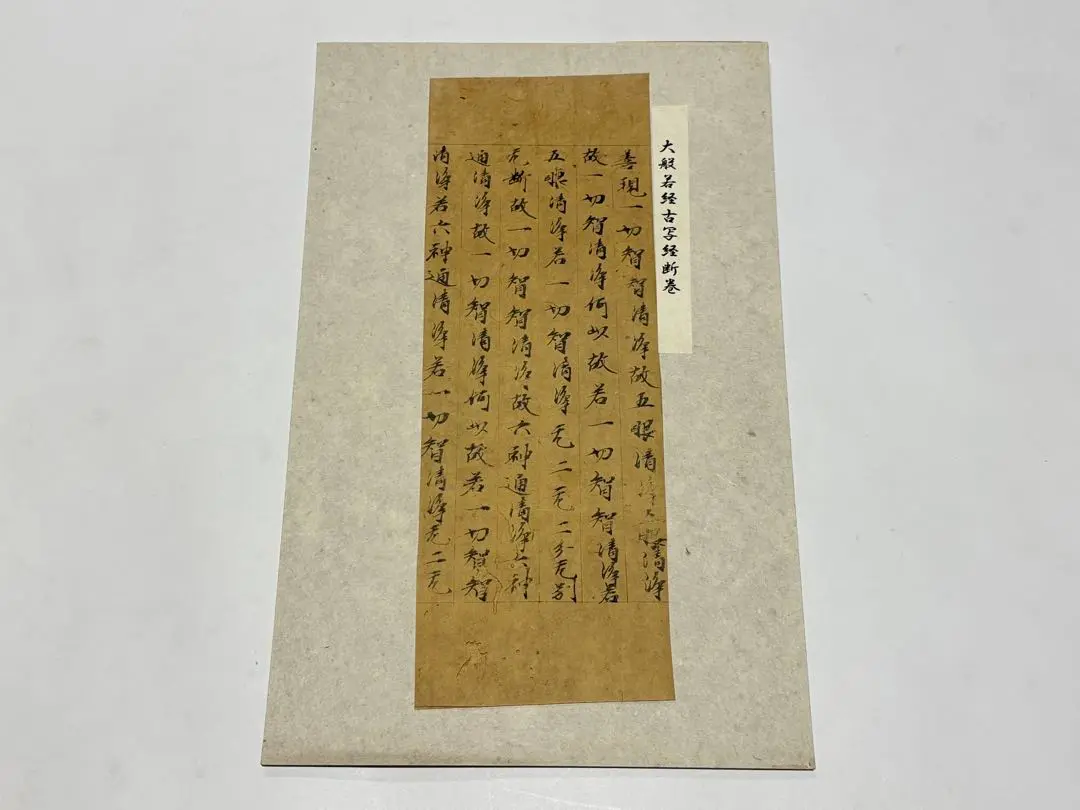 大般若经古写经断卷
善現一切智智清淨故五眼清淨五眼清淨
故一切智清淨何以故若一切智智清淨若
五眼清淨若一切智清淨无二无二分无别
无断故一切智智清淨故六神通清淨六神
通清淨故一切智清淨何以故若一切智智
清淨若六神通清淨若一切智清淨无二无